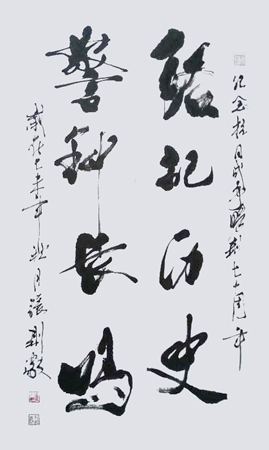 纪念抗日战争胜利七十周年
铭记历史
警钟长鸣
岁在乙未年